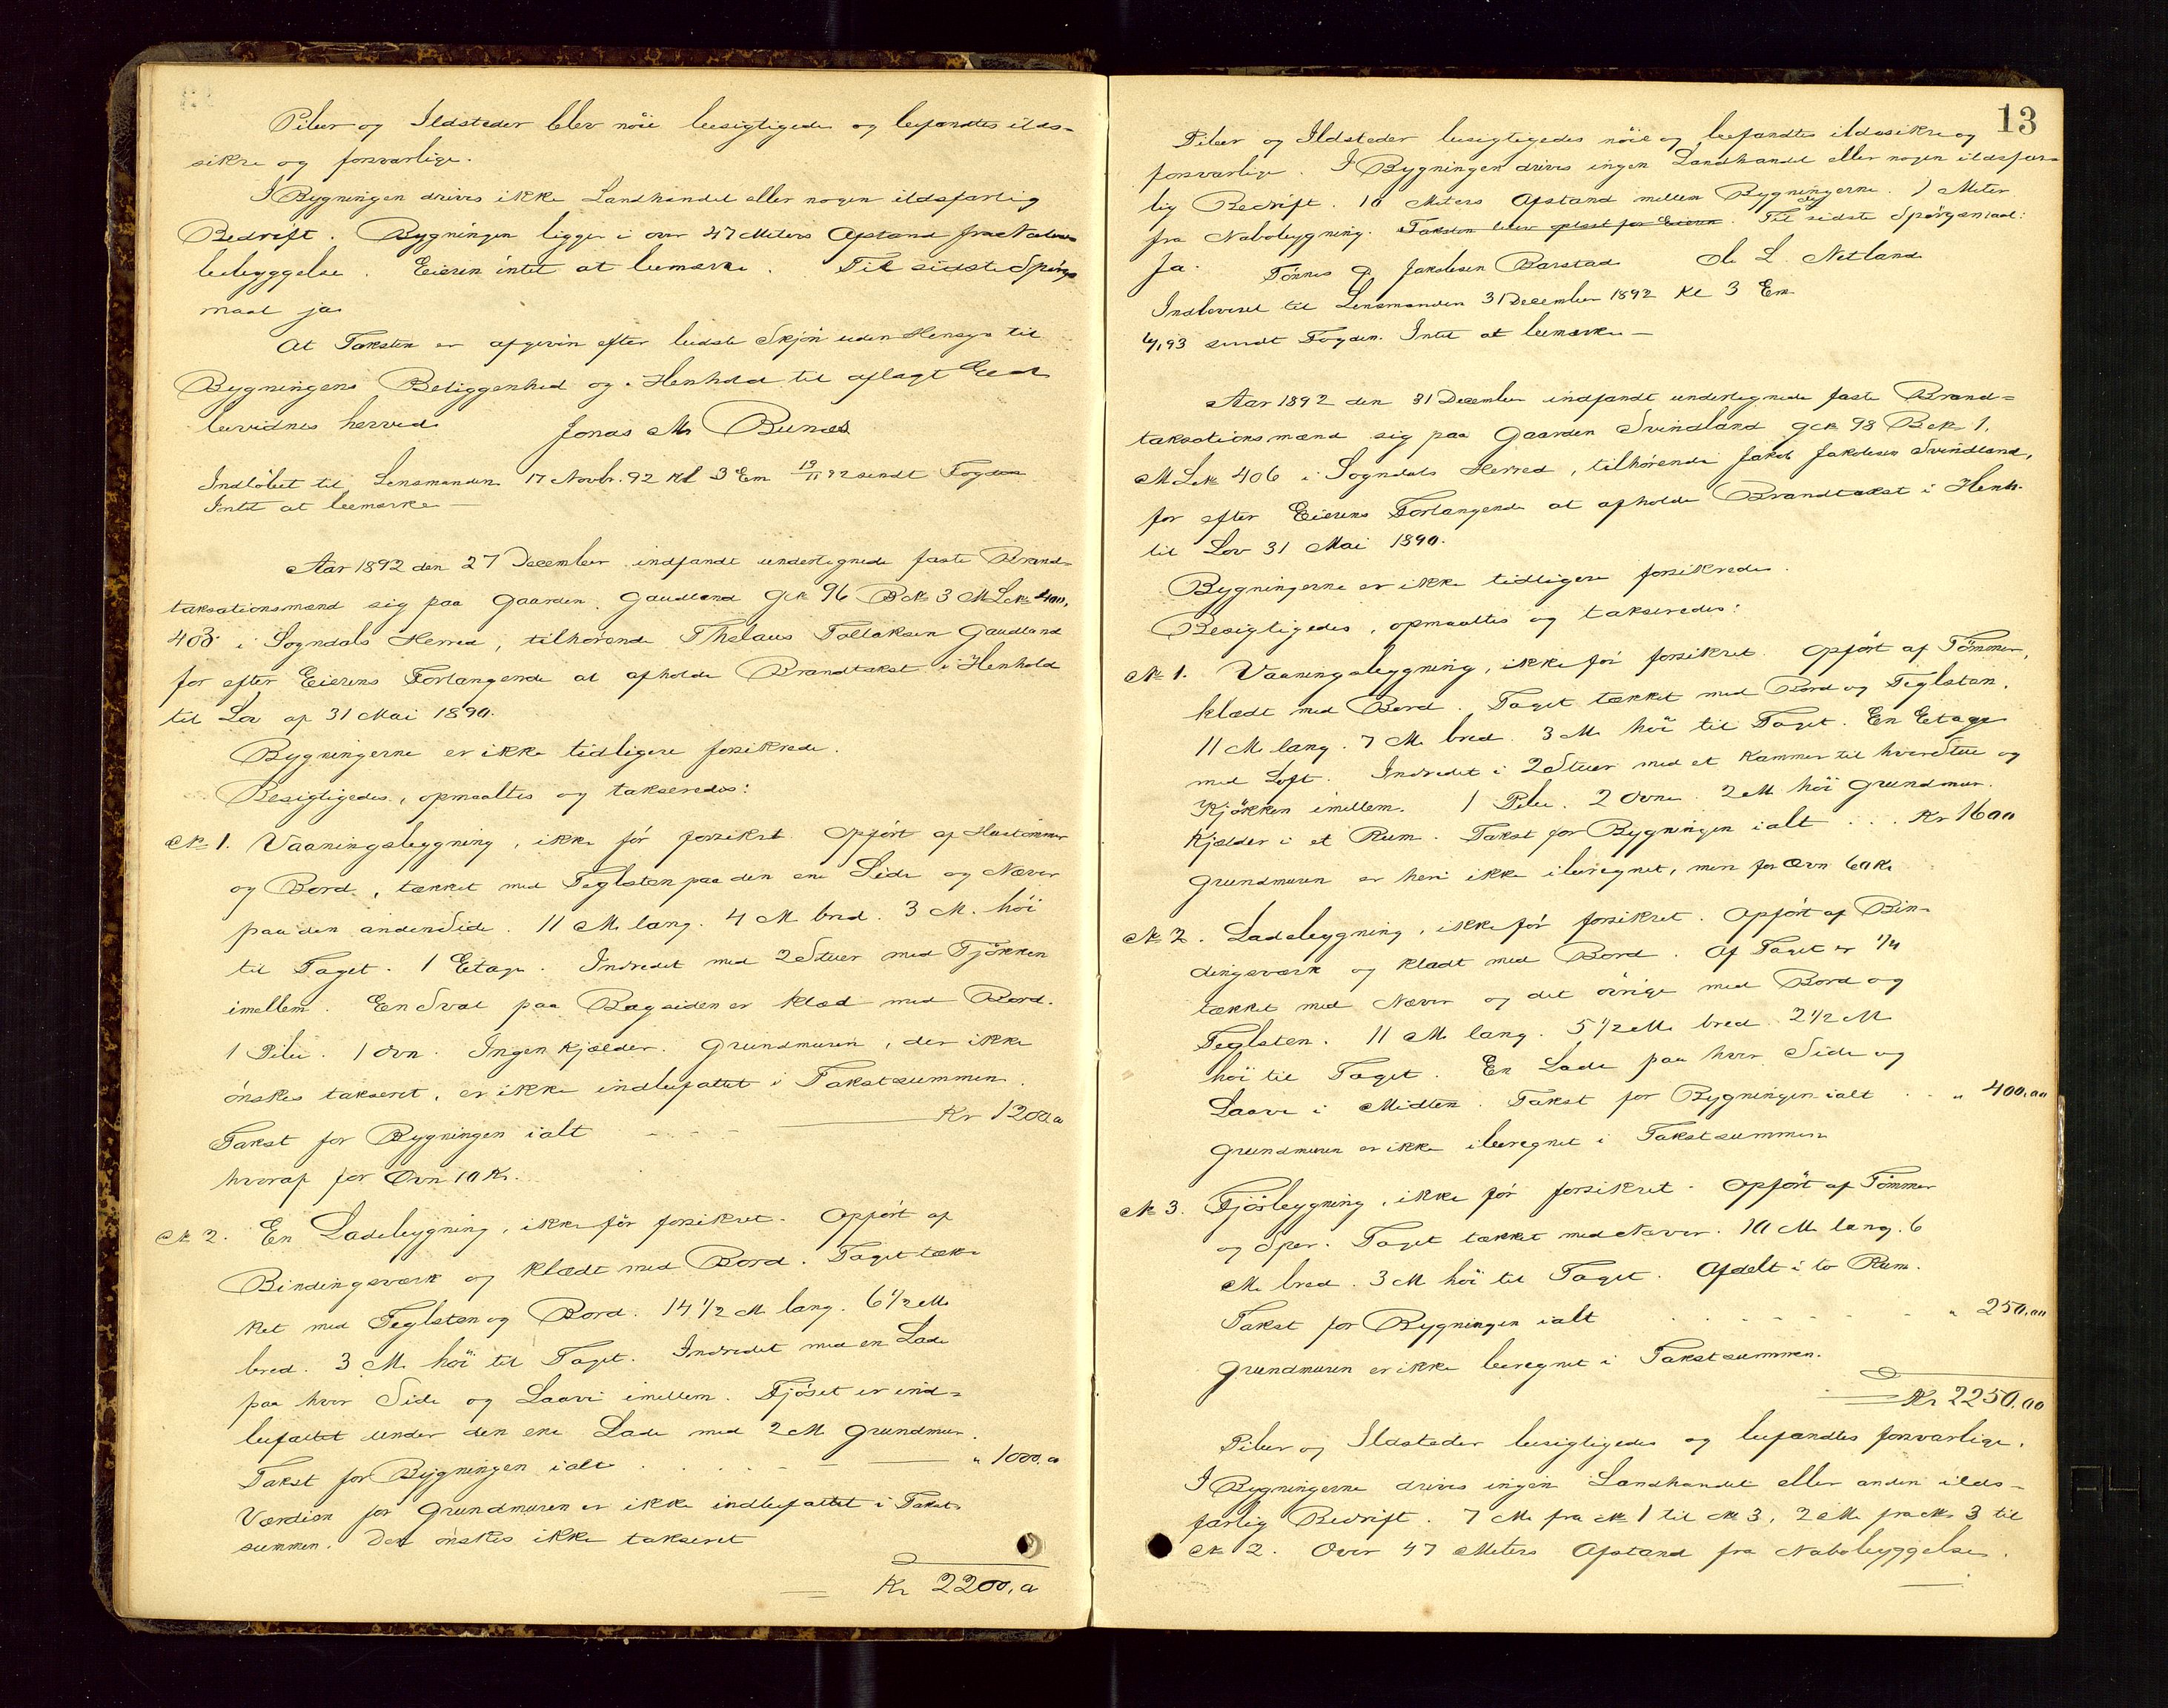 Piber og Ildsteder blev nöie besigtigede og befandtes ilds-
sikre og forsvarlige.
I Bygningen drives ikke Landhandel eller nogen ildsfarlig
Bedrift. Bygningen ligger i over 47 Meters Afstand fra Nabo
bebyggelse. Eieren intet at bemærke. Til sidste Spörgs
maal ja
At Taksten er afgiven efter bedste Skjön uden Hensyn til
Bygningens Beliggenhed og i Henhold til aflagt Eed
bevidnes herved Jonas M. Bunes
Indlöbet til Lensmanden 17 Novbr. 92 Kl 3 Em 19/11 92 sendt Fogden
Intet at bemærke —
Aar 1892 den 27 December indfandt undertegnede faste Brand-
taksationsmænd sig paa Gaarden Gaudland G№ 96 B№ 3 ML№ 400,
403 i Sogndals Herred, tilhörende Thelaus Tollaksen Gaudland
for efter Eierens Forlangende at afholde Brandtakst i Henhold
til Lov af 31 Mai 1890.
Bygningerne er ikke tidligere forsikrede.
Besigtigedes, opmaaltes og takseredes:
№ 1. Vaaningsbygning, ikke för forsikret. Opfört af Hustömmer
og Bord, tækket med Teglsten paa den ene Side og Næver
paa den anden Side. 11 M. lang. 4 M bred. 3 M. höi
til Taget. 1 Etage. Indredet med 2 Stuer med Kjökken
imellem. En Sval paa Bagsiden er klæd med Bord.
1 Pibe. 1 Ovn. Ingen Kjælder. Grundmuren, der ikke
önskes takseret, er ikke indbefattet i Takstsummen.
Takst for Bygningen ialt — Kr 1200,00
hvoraf for Ovn 10 Kr.
№ 2. En Ladebygning, ikke för forsikret. Opfört af
Bindingsværk og klædt med Bord. Taget tæk-
ket med Teglsten og Bord. 14 1/2 M lang. 6 1/2 M.
bred. 3 M. höi til Taget. Indredet med en Lade
paa hver Side og Laave imellem. Fjöset er ind-
befattet under den ene Lade med 2 M Grundmur.
Takst for Bygningen ialt — " 1000,00
Værdien for Grundmuren er ikke indbefattet i Takst-
summen. Den önskes ikke takseret
Kr 2200,00
13
Piber og Ildsteder besigtigedes nöie og befandtes ildssikre og
forsvarlige. I Bygningen drives ingen Landhandel eller nogen ildsfar-
lig Bedrift. 10 Meters Afstand mellem Bygningerne. 1 Meter
fra Nabobygning. Taksten blev oplæst for Eieren. Til sidste Spörgsmaal:
Ja. Tönnes G. Jakobsen Barstad Ole L. Netland
Indleveret til Lensmanden 31 December 1892 Kl 3 Em
6/1 93 sendt Fogden. Intet at bemærke —
Aar 1892 den 31 December indfandt undertegnede faste Brand-
taksationsmænd sig paa Gaarden Svindland G№ 98 B№ 1.
ML№ 406 i Sogndals Herred, tilhörende Jakob Jakobsen Svindland,
for efter Eierens Forlangende at afholde Brandtakst i Henh.
til Lov 31 Mai 1890.
Bygningerne er ikke tidligere forsikrede.
Besigtigedes, opmaaltes og takseredes:
№ 1. Vaaningsbygning, ikke för forsikret. Opfört af Tömmer,
klædt med Bord. Taget tækket med Bord og Teglsten.
11 M. lang. 7 M. bred. 3 M. höi til Taget. En Etage
med Loft. Indredet i 2 Stuer med et Kammer til hver Stue og
Kjökken imellem. 1 Pibe. 2 Ovne. 2 M höi Grundmur.
Kjælder i et Rum. Takst for Bygningen ialt . . . Kr 1600
Grundmuren er heri ikke iberegnet, men for Ovn 60 Kr
№ 2. Ladebygning, ikke för forsikret. Opfört af Bin-
dingsværk og klædt med Bord. Af Taget er 1/4
tækket med Næver og det övrige med Bord og
Teglsten. 11 M. lang. 5 1/2 M. bred. 2 1/2 M
höi til Taget. En Lade paa hver Side og
Laave i Midten. Takst for Bygningen ialt . . " 400,00
Grundmuren er ikke iberegnet i Takstsummen
№ 3. Fjösbygning, ikke för forsikret. Opfört af Tömmer
og Sper. Taget tækket med Næver. 10 M. lang. 6
M. bred. 3 M höi til Taget. Afdelt i to Rum.
Takst for Bygningen ialt " 250,00
Grundmuren er ikke beregnet i Takstsummen.
Kr 2250,00
Piber og Ildsteder besigtigedes og befandtes forsvarlige.
I Bygningerne drives ingen Landhandel eller anden ilds-
farlig Bedrift. 7 M. fra № 1 til № 3, 2 M. fra № 3 til
№ 2. Over 47 Meters Afstand fra Nabobyggelse.